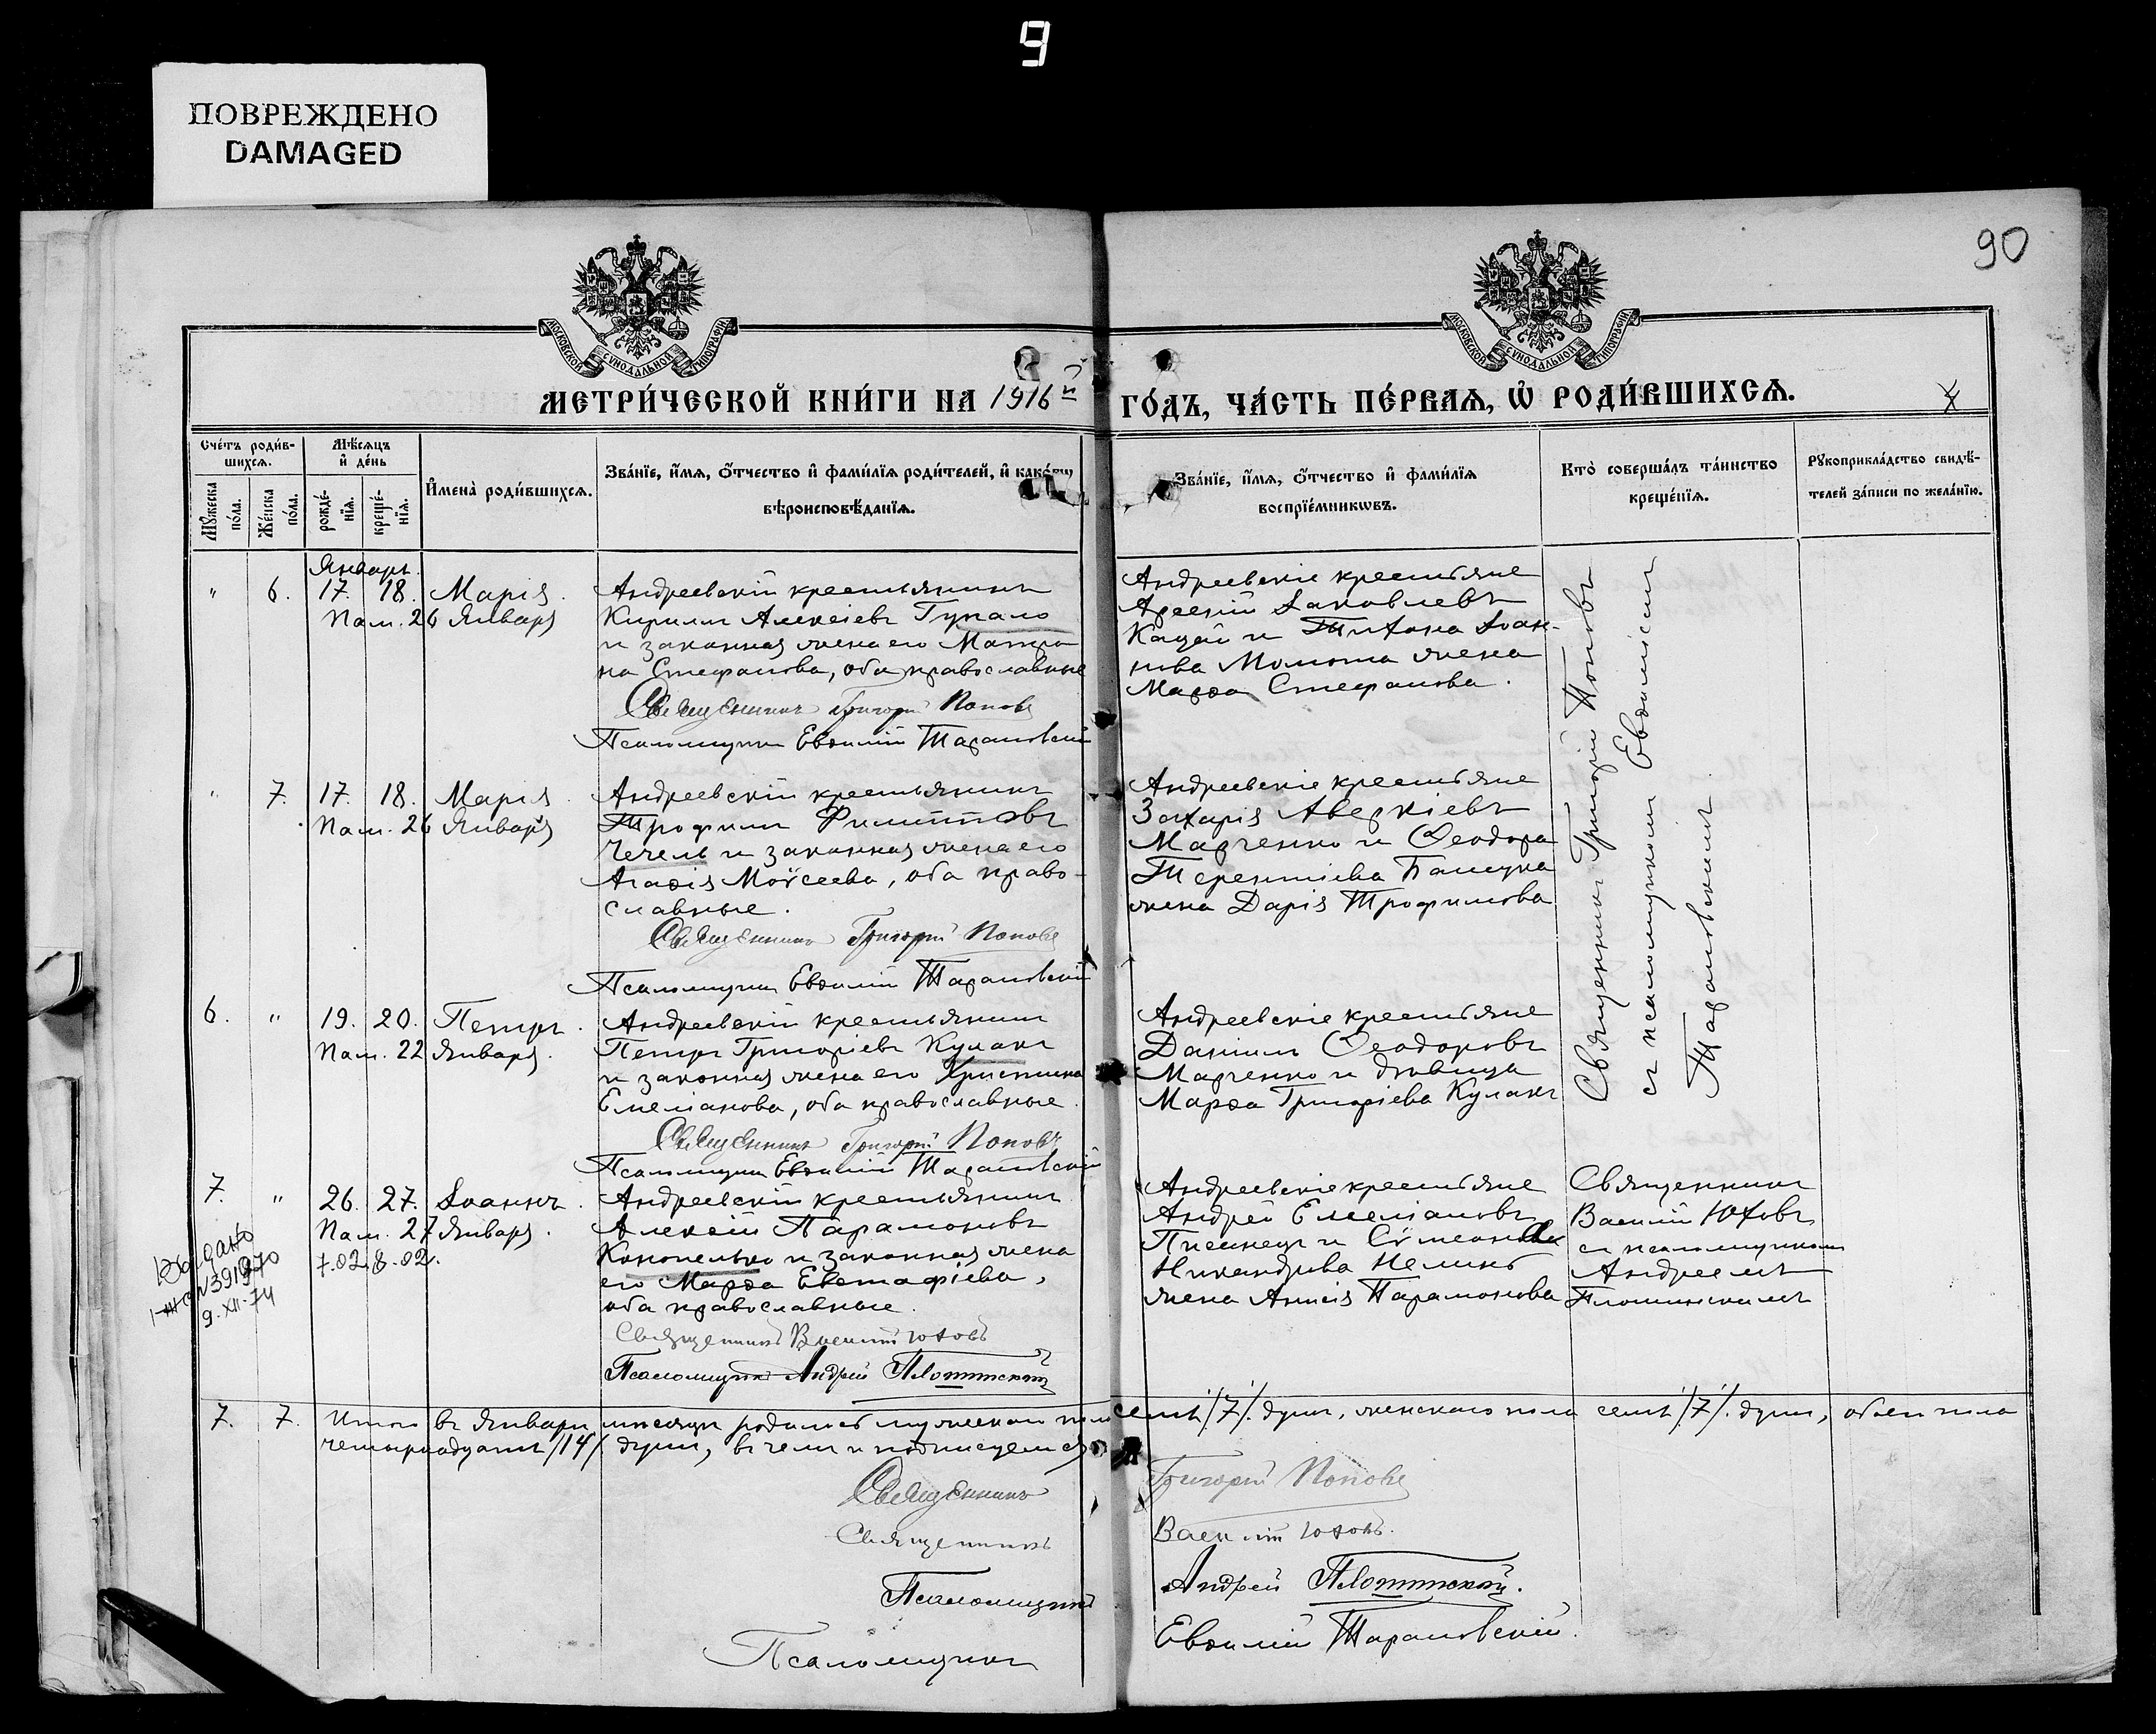 9
ПОВРЕЖДЕНО
DAMAGED
90
МОСКОВСКОЙ СУНОДАЛЬНОЙ ТИПОГРАФІИ
МОСКОВСКОЙ СУНОДАЛЬНОЙ ТИПОГРАФІИ
МЕТРИ́ЧЕСКОЙ КНИ́ГИ НА 1916й ГО́ДЪ, ЧА́СТЬ ПЕ́РВАѦ, Ѡ҆ РОДИ́ВШИХСѦ.
Сче́тъ роди́в-
шихсѧ.
Мꙋ́жеска по́ла.
Же́нска по́ла.
Мѣ́сѧцъ
и҆ де́нь
рожде́-
нїѧ.
креще́-
нїѧ.
И҆мена̀ роди́вшихсѧ.
Зва́нїе, и҆́мѧ, ѻ҆́тчество и҆ фами́лїѧ роди́телей, и҆ како́гѡ
вѣроисповѣ́данїѧ.
Зва́нїе, и҆́мѧ, ѻ҆́тчество и҆ фами́лїѧ
воспрїе́мникѡвъ.
Кто̀ соверша́лъ та́инство
креще́нїѧ.
Рꙋкоприкла́дство свидѣ́-
телей за́писи по жела́нїю.
Январь.
" 6. 17. 18. Марія.
Пам. 26 Января
Андреевскій крестьянинъ
Кирилл Алексіевъ Гупало
и законная жена его Матро-
на Стефанова, оба православные
Священникъ Григорій Поповъ
Псаломщикъ Евѳимій Тарановскій
Андреевскіе крестьяне
Арсеній Іаковлевъ
Кацай и Тихона Іоан-
нова Молота жена
Марѳа Стефанова.
Священникъ Григорій Поповъ
съ псаломщикомъ Евѳиміемъ
Тарановскимъ.
" 7. 17. 18. Марія.
Пам. 26 Января
Андреевскій крестьянинъ
Трофимъ Филипповъ
Чечель и законная жена его
Агаѳія Моѵсеева, оба право-
славные.
Священникъ Григорій Поповъ
Псаломщикъ Евѳимій Тарановскій
Андреевскіе крестьяне
Захарія Аверкіевъ
Марченко и Ѳеодора
Терентіева
жена Дарія Трофимова
6. " 19. 20. Петръ.
Пам. 22 Января.
Андреевскій крестьянинъ
Петръ Григоріевъ Кулакъ
и законная жена его Христина
Емеліанова, оба православные.
Священникъ Григорій Поповъ
Псаломщикъ Евѳимій Тарановскій
Андреевскіе крестьяне
Даніилъ Ѳеодоровъ
Марченко и дѣвица
Марѳа Григоріева Кулакъ
7. " 26. 27. Іоаннъ.
Пам. 27 Января.
7.02. 8.02.
Выдано
9.XII.74
Андреевскій крестьянинъ
Алексій Парамоновъ
Кононелько и законная жена
его Марѳа Евстафіева,
оба православные.
Священникъ Василій Юховъ
Псаломщикъ Андрей Плотинскій
Андреевскіе крестьяне
Андрей Емеліановъ
Письменецъ и Сѵмеона
Никандрова
жена Анисія Парамонова
Священникъ
Василій Юховъ
съ псаломщикомъ
Андреемъ
Плотинскимъ
7. 7. Итого въ Январѣ мѣсяцѣ родилось мужескаго пола семь /7/. душъ, женскаго пола семь /7/. душъ, обоего пола
четырнадцать /14/ душъ, въ чемъ и подписуемся
Священникъ Григорій Поповъ
Священникъ Василій Юховъ.
Псаломщикъ Андрей Плотинскій.
Псаломщикъ Евѳимій Тарановскій.